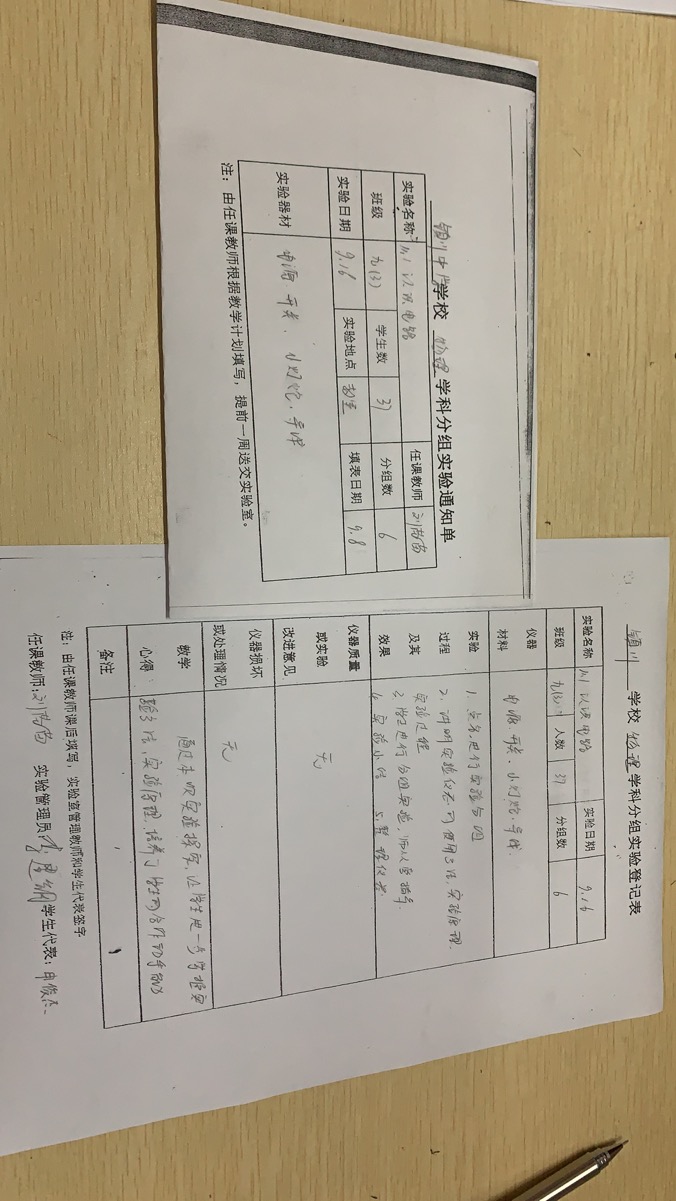 颍川中学学校 物理 学科分组实验通知单
实验名称 11.1 认识电路 任课教师
班级 九(3) 学生数 37 分组数 6
实验日期 9.16 实验地点 教室 填表日期 9.8
实验器材 电源 开关、小灯泡、导线
注：由任课教师根据教学计划填写，提前一周送交实验室。
颍川 学校 物理 学科分组实验登记表
实验名称 11.1 认识电路 实验日期 9.16
班级 九(3) 人数 37 分组数 6
仪器
材料
电源 开关、小灯泡、导线
实验
过程
及其
效果
1. 点名进行实验分组
2. 讲明实验仪器的使用方法、实验原理、
实验过程
3. 学生进行分组实验，师巡回指导.
4. 实验小结 5. 整理仪器.
仪器质量
或实验
改进意见
无
仪器损坏
或处理情况
无
教学
心得
通过本次实验探究，让学生进一步掌握实
验方法，实验原理，培养了学生的合作动手能力
备注
注：由任课教师课后填写，实验室管理教师和学生代表签字
任课教师： 实验管理员： 学生代表：